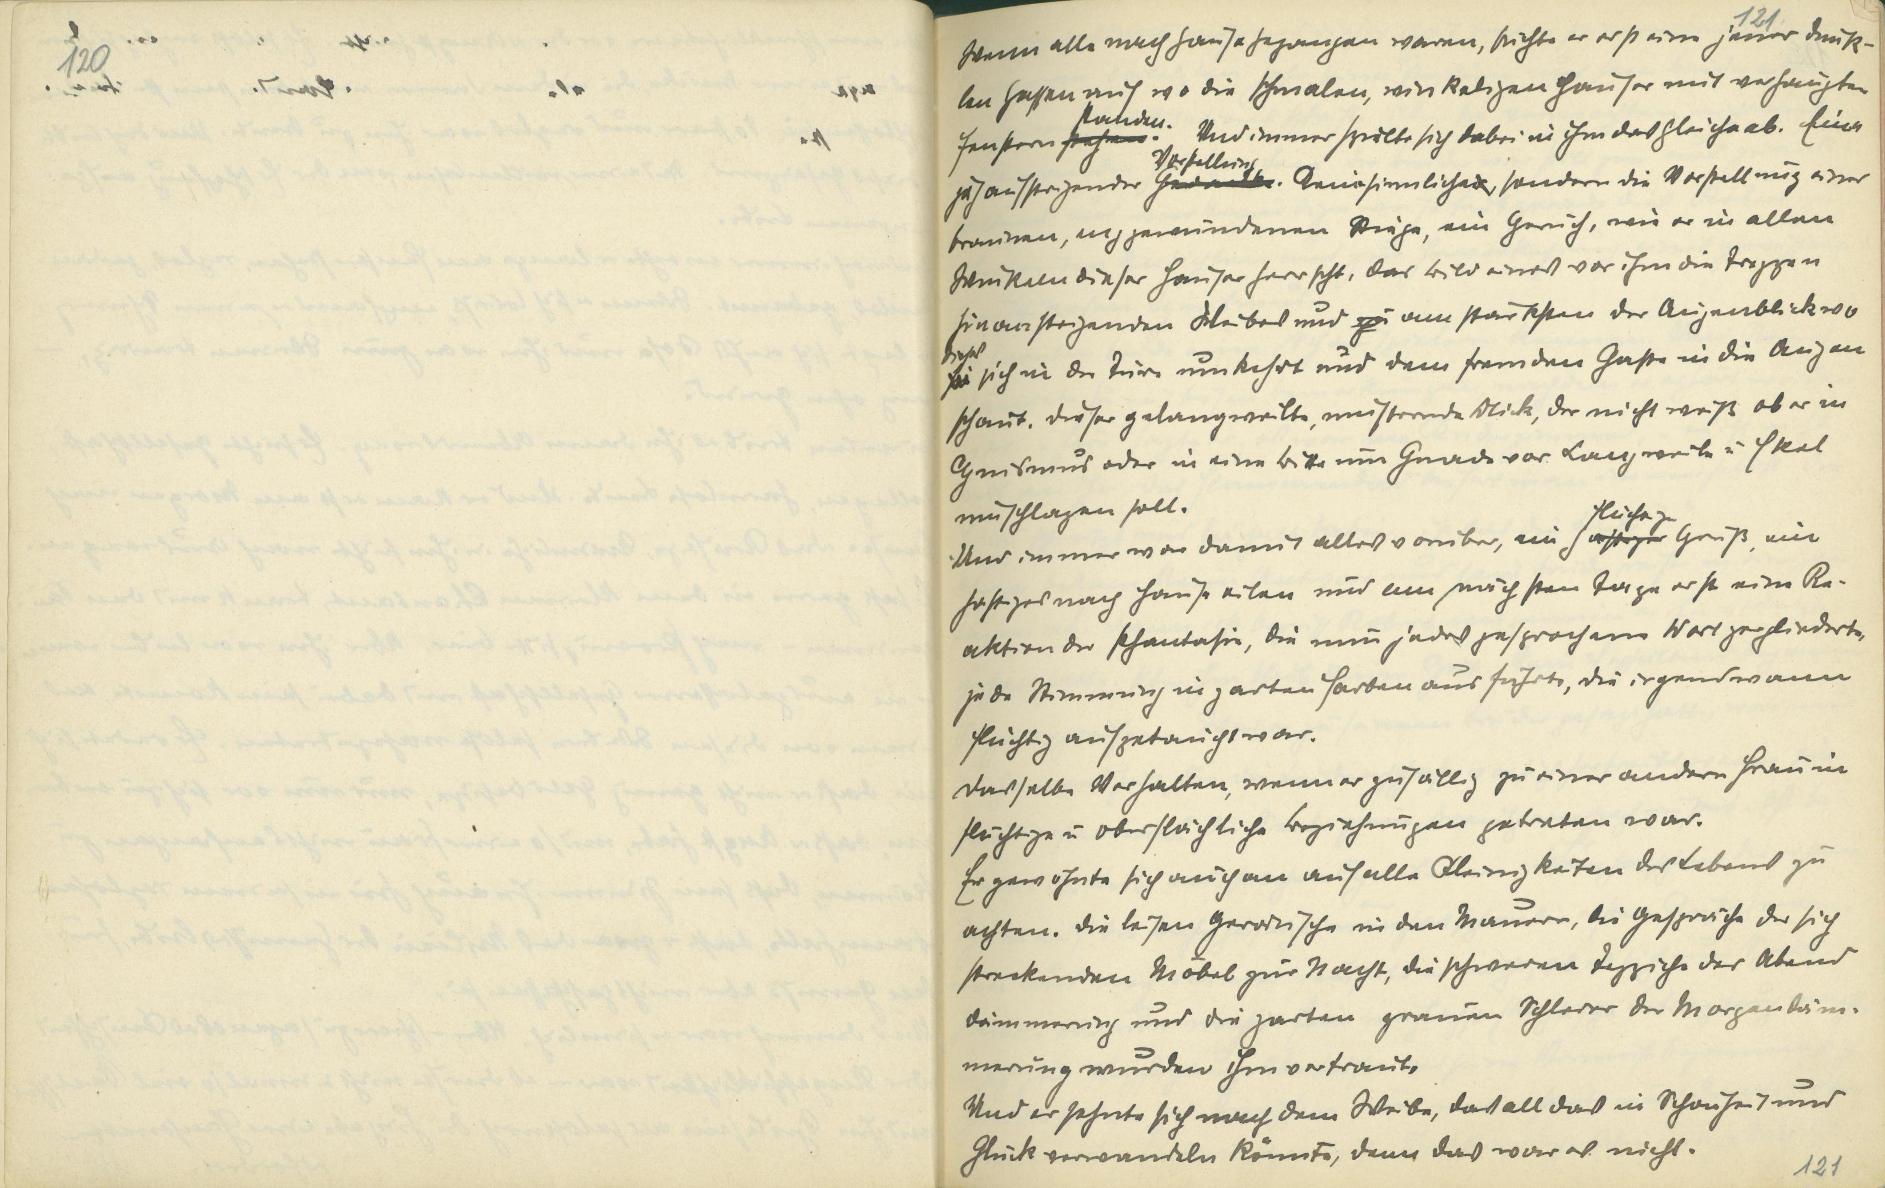 120
121
Wenn alle nach Hause gegangen waren, suchte er erst eine jener dunk-
len Gassen auf wo die schmalen, winkeligen Häuser mit verhängten
Fenstern stehen standen. Und immer spielte sich dabei in ihm das Gleiche ab. Eine
jäh aufsteigender Gedanke Vorstellung. Keine sinnliche, sondern die Vorstellung einer
braunen, enggewundenen Stiege, ein Geruch, wie er in allen
Winkeln dieser Häuser herrscht, das Bild eines vor ihm die Treppen
hinansteigenden Weibes und am stärksten der Augenblick wo
dieses sich in der Türe umkehrt und dem fremden Gaste in die Augen
schaut. Dieser gelangweilte, musternde Blick, der nicht weiß ob er in
Cynismus oder in eine Bitte um Gnade vor Langweile u Ekel
umschlagen soll.
Und immer war damit alles vorüber, ein hastiger flüchtiger Gruß, ein
hastiges nach Hause eilen und am nächsten Tage erst eine Re-
aktion der Phantasie, die nun jedes gesprochene Wort zergliederte,
jede Stimmung in zarten Farben ausführte, die irgendwann
flüchtig aufgetaucht war.
Dasselbe Verhalten, wenn er zufällig zu einer andern Frau in
flüchtige u oberflächliche Beziehungen getreten war.
Er gewöhnte sich auch an auf alle Kleinigkeiten des Lebens zu
achten. Die leisen Geräusche in den Mauern, die Gespräche der sich
streckenden Möbel zur Nacht, die schweren Teppiche der Abend
dämmerung und die zarten grauen Schleier der Morgendäm-
merung wurden ihm vertraut.
Und er sehnte sich nach dem Weibe, das all das in Schönheit und
Glück verwandeln könnte, denn das war es nicht.
121